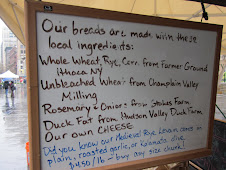 Our breads are made with these
local ingredients:
Whole Wheat, Rye, Corn from Farmer Ground
Ithaca NY
Unbleached Wheat from Champlain Valley
Milling
Rosemary & Onions from Stokes Farm
Duck Fat from Hudson Valley Duck Farm
Our own CHEESE
Did you know our Medieval Rye Levain comes in
plain, roasted garlic, or Kalamata olive
$4.50/lb - buy any size chunk!